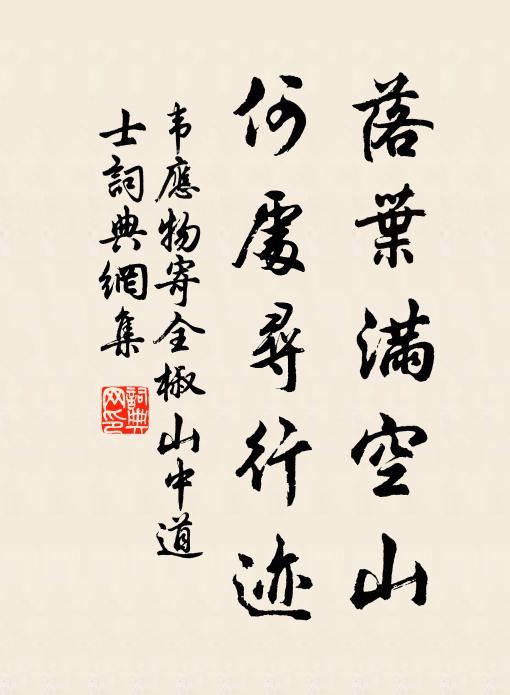 落葉满空山
何處尋行迹
韦應物寄全椒山中道
士詞典網集
詞典
网印